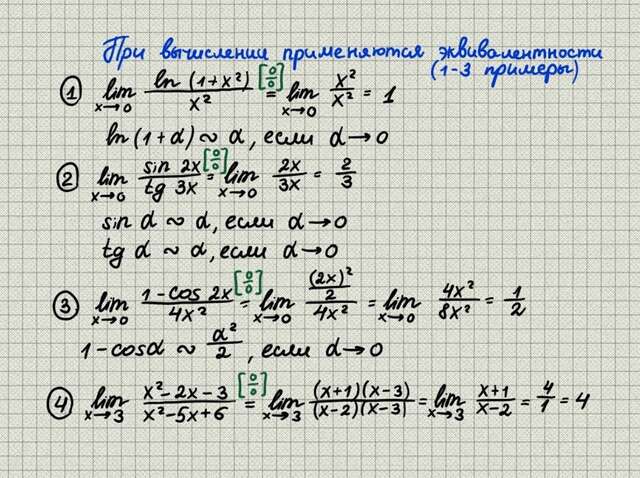 При вычислении применяются эквивалентности
(1-3 примеры)
① lim x→0 ln (1+x²) / x² [0/0] = lim x→0 x²/x² = 1
ln (1+α) ~ α, если α→0
② lim x→0 sin 2x / tg 3x [0/0] = lim x→0 2x/3x = 2/3
sin α ~ α, если α→0
tg α ~ α, если α→0
③ lim x→0 1-cos 2x / 4x² [0/0] = lim x→0 (2x)²/2 / 4x² = lim x→0 4x²/8x² = 1/2
1-cosα ~ α²/2, если α→0
④ lim x→3 x²-2x-3 / x²-5x+6 [0/0] = lim x→3 (x+1)(x-3) / (x-2)(x-3) = lim x→3 x+1 / x-2 = 4/1 = 4